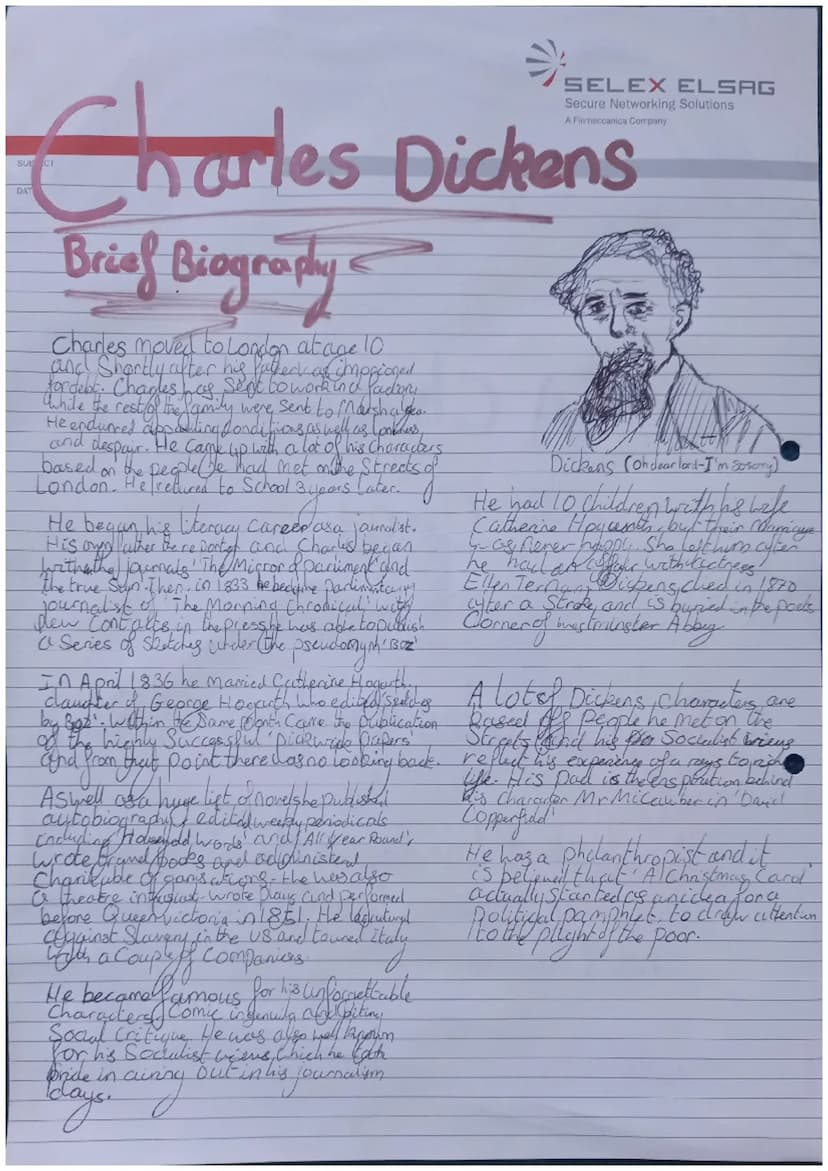 SELEX ELSAG
Secure Networking Solutions
A Finmeccanica Company
SUBJECT
DATE
Charles Dickens
Brief Biography
Charles moved to London at age 10
and shortly after his father was imprisoned
for debt. Charles was sent to work in a factory
while the rest of the family were sent to Marshalsea.
He endured appalling conditions as well as loneliness
and despair. He came up with a lot of his characters
based on the people he had met on the streets of
London. He returned to School 3 years later.
He began his literacy career as a journalist.
His own father the reporter and Charles began
with the journals 'The Mirror of parliment' and
the true Sun. Then in 1833 he became parlimentary
journalist of 'The Morning Chronical' with
new contacts in the press he was able to publish
a series of sketches under the pseudomynh 'Boz'
In April 1836 he married Catherine Hogarth,
daughter of George Hogarth who edited 'sketches
by Boz'. Within the same month came the publication
of the highly successful 'Pickwick Papers'
and from that point there was no looking back.
As well as a huge list of novels he published
autobiography, edited weekly periodicals
including 'Household Words' and 'All Year Round',
wrote travel books and administered
Charitable organisations. He was also
a theatre - wrote plays and performed
before Queen Victoria in 1851. He lectured
against Slavery in the US and toured Italy
with a couple of companies.
He became famous for his unforgettable
characters, comic ingenuity and biting
Social critique. He was also well known
for his Socialist views, which he took
pride in airing out in his journalism
days.
Dickens (oh dear lord - I'm so sorry)
He had 10 children with his wife
Catherine but their marriage
was never happy. She left him after
he had an affair with actress
Ellen Ternan. Dickens died in 1870
after a stroke and is buried in the poets
Corner of Westminster Abbey
A lot of Dickens characters are
based off people he met on the
streets and his Socialist views
reflect his experience of a rags to riches
life. His Dad is the inspiration behind
his character Mr Micawber in 'David
Copperfield'
He was a philanthropist and it
is believed that 'A Christmas Carol'
actually started as an idea for a
political pamphlet, to draw attention
to the plight of the poor.